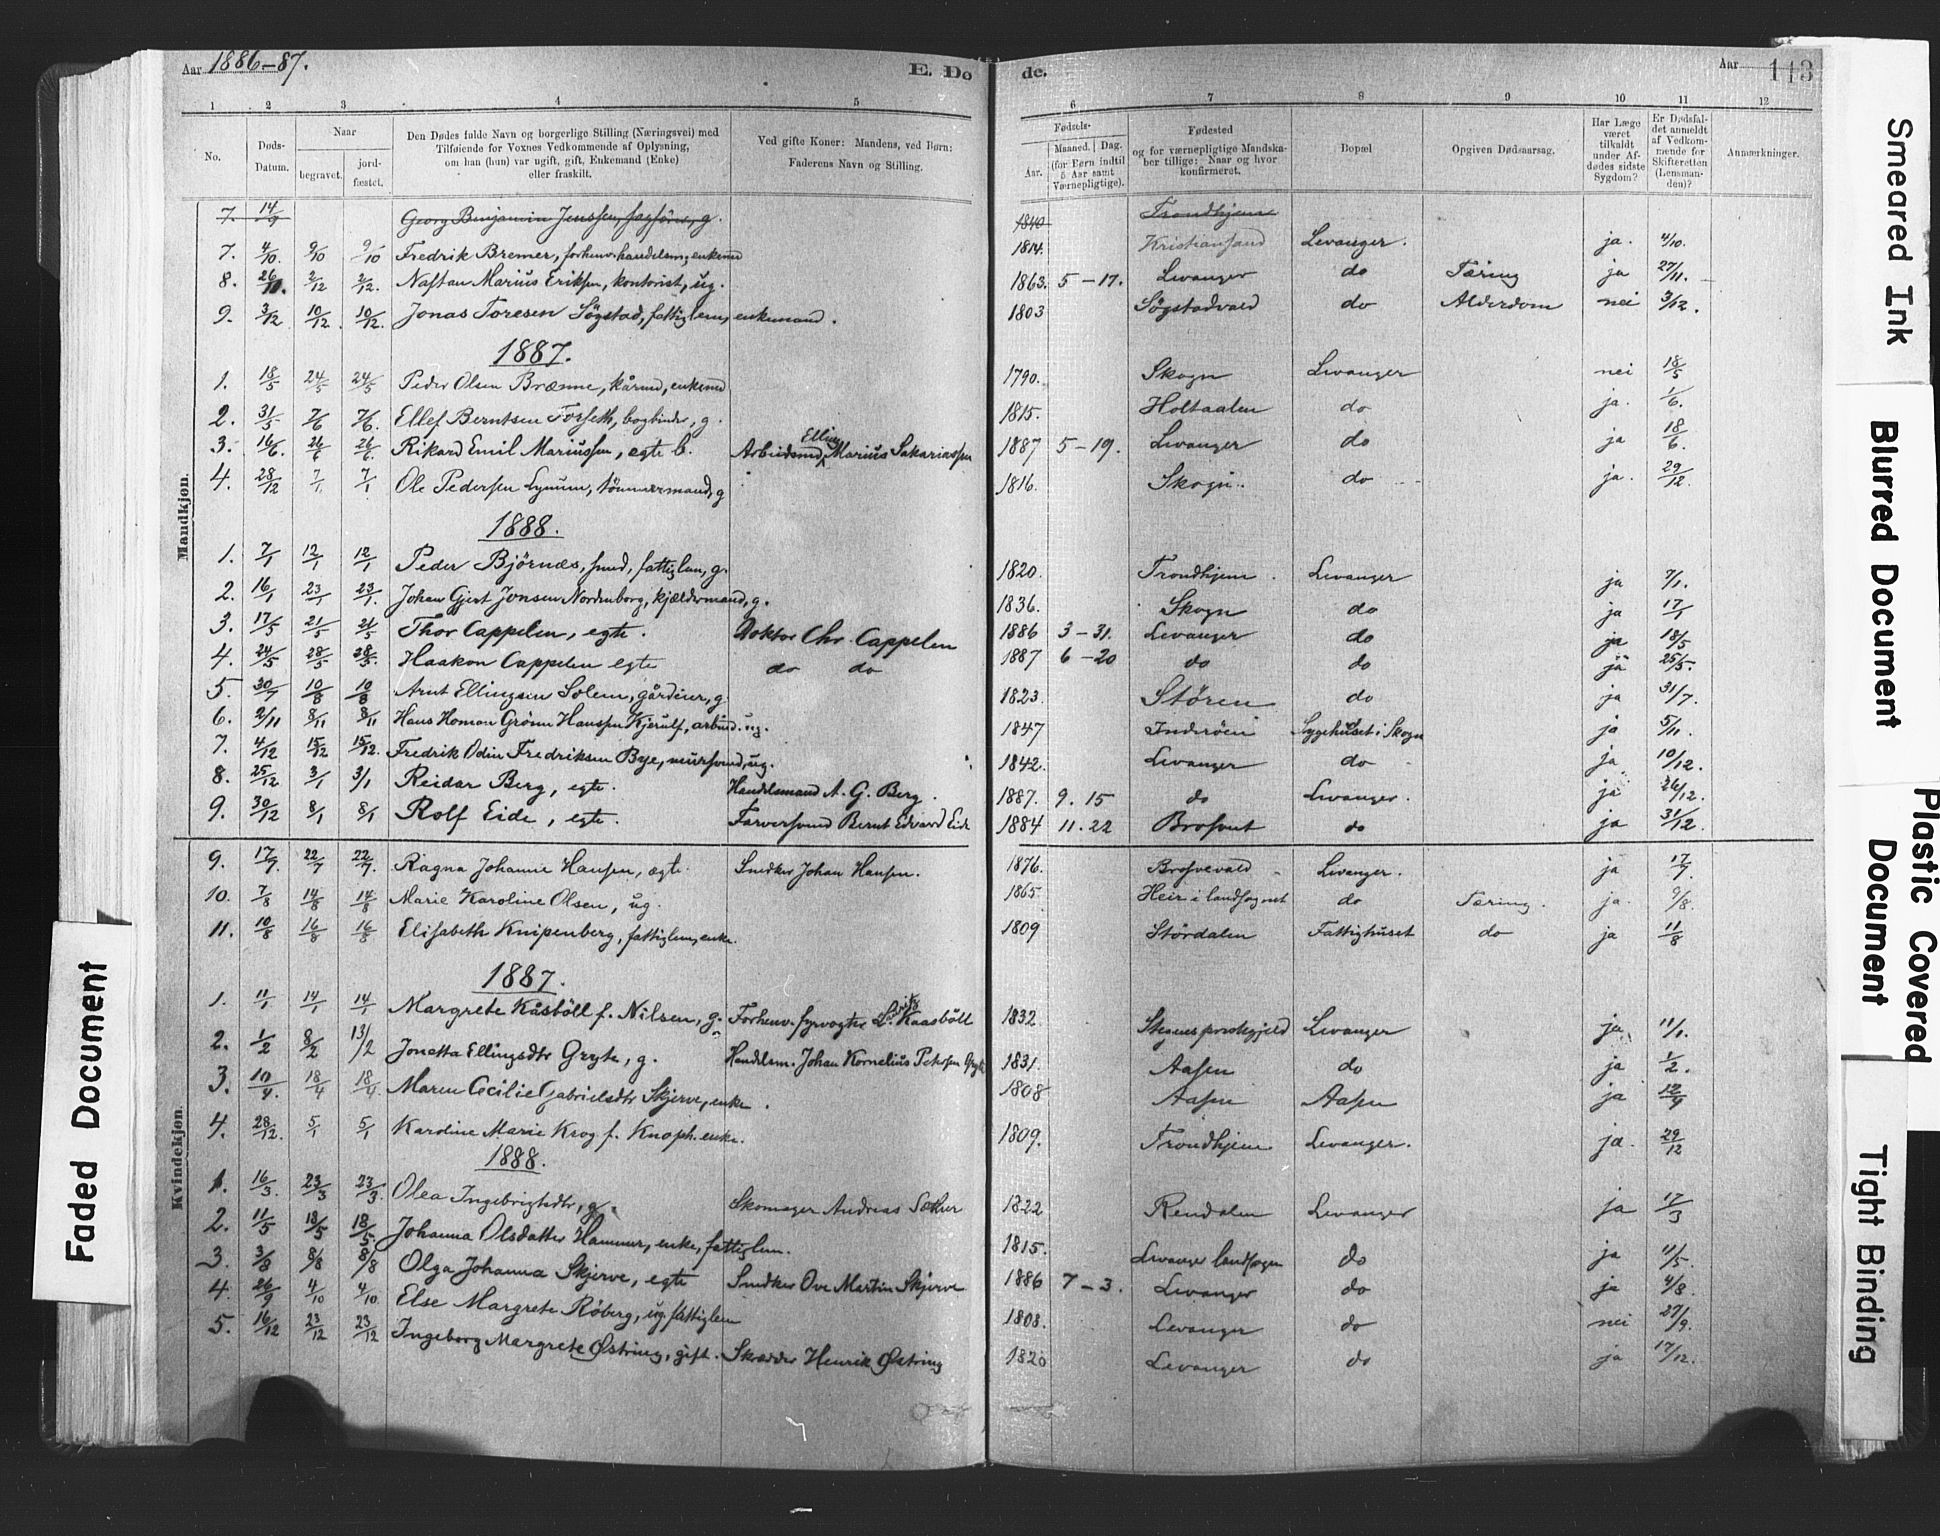 Aar 1886-87. E. Do de. Aar 113
1 2 3 4 5 6 7 8 9 10 11 12
No. Døds-Datum. Naar begravet. jordfæstet. Den Dødes fulde Navn og borgerlige Stilling (Næringsvei) med Tilføiende for Voxnes Vedkommende af Oplysning, om han (hun) var ugift, gift, Enkemand (Enke) eller fraskilt. Ved gifte Koner: Mandens, ved Børn: Faderens Navn og Stilling. Fødsels- Aar. Maaned. Dag. (for Børn indtil 5 Aar samt Værnepligtige). Fødested og for værnepligtige Mandskaber tillige: Naar og hvor konfirmeret. Bopæl Opgiven Dødsaarsag. Har Læge været tilkaldt under Afdødes sidste Sygdom? Er Dødsfaldet anmeldt af Vedkommende for Skifteretten (Lensmanden)? Anmærkninger.
Mandkjøn.
7. 14/9 Georg Benjamin Jenssen, fagfører, g. 1840 Trondhjem
7. 4/10. 9/10 9/10 Fredrik Bremer, forhenv. handelsm, enkem 1814. Kristiansand Levanger. ja. 4/10.
8. 26/11. 2/12 2/12. Naftan Marius Eriksen, kontorist, ug. 1863. 5-17. Levanger do Tæring ja 27/11.
9. 3/12 10/12. 10/12. Jonas Toresen Søgstad, fattiglem, enkemand. 1803 Søgstadvald do Alderdom nei 3/12.
1887.
1. 18/5 24/5 24/5 Peder Olsen Brænne, kårmd, enkemd 1790. Skogn Levanger nei 18/5
2. 31/5 7/6 7/6. Ellef Berntsen Forseth, bogbinder, g. 1815. Holtaalen do ja. 1/6.
3. 16/6. 26/6 26/6. Rikard Emil Mariussen, egte b. Arbeidsmd Elling Marius Sakariassen 1887 5-19. Levanger do ja 18/6.
4. 28/12 7/1 7/1 Ole Pedersen Lynum, tømmermand, g 1816. Skogn. do ja. 29/12.
1888.
1. 7/1 12/1 12/1 Peder Bjørnæs, smed, fattiglem, g. 1820. Trondhjem. Levanger ja 7/1.
2. 16/1 23/1 23/1. Johan Gjert Jonsen Nordenborg, kjældermand, g. 1836. Skogn do ja 17/1
3. 17/5 21/5 21/5 Thor Cappelen, egte. Doktor Chr. Cappelen 1886 3-31. Levanger do ja 18/5
4. 24/5 28/5 28/5. Haakon Cappelen egte do do 1887 6-20 do do ja 25/5.
5. 30/7 10/8 10/8 Arnt Ellingsen Solem, gårdeier, g. 1823. Støren do ja 31/7.
6. 2/11 8/11 8/11 Hans Homan Grønn Hanssen Kjerulf, arbmd. ug. 1847 Inderøen Sygehuset i Skogn ja 5/11.
7. 4/12 15/12 15/12. Fredrik Odin Fredriksen Bye, mursvend, ug. 1842. Levanger do ja 10/12.
8. 25/12 3/1 3/1 Reidar Berg, egte. Handelsmand A. G. Berg. 1887. 9. 15 do Levanger. ja 26/12.
9. 30/12 8/1 8/1 Rolf Eide, egte. Farversvend Bernt Edvard Eide 1884 11. 22 Brosvet do ja 31/12.
Kvindekjøn.
9. 17/7. 22/7 22/7. Ragna Johanne Hansen, ægte. Snedker Johan Hansen. 1876. Brosvevald Levanger. ja 17/7.
10. 7/8 14/8 14/8 Marie Karoline Olsen, ug. 1865. Heir i landsognet do Tæring. ja. 9/8.
11. 10/8 16/8 16/8 Elisabeth Knipenberg, fattiglem, enke. 1809 Stördalen Fattighuset do ja 11/8
1887.
1. 11/1 14/1 14/1 Margrete Kåsböll f. Nilsen, g. Forhenv. fyrvogter L. Kaasböll 1832 Stegens prestegjeld Levanger ja 11/1.
2. 1/2 8/2 13/2 Jonetta Ellingsdtr Gryte, g. Handelsm. Johan Kornelius Petersen Gryte 1831. Aasen do ja 1/2.
3. 10/4. 18/4 18/4. Maren Cecilie Gabrielsdtr Skjerve, enke. 1808 Aasen Aasen ja 12/4
4. 28/12. 5/1 5/1 Karoline Marie Krog f. Knoph. enke. 1809. Trondhjem Levanger. ja. 29/12
1888.
1. 16/3. 23/3 23/3. Olea Ingebrigtsdtr, g. Skomager Andreas Sæther 1822 Rendalen Levanger ja 17/3
2. 11/5 18/5 18/5. Johanna Olsdatter Hammer, enke, fattiglem. 1815. Levanger landsogn do ja 11/5.
3. 3/8 8/8 8/8 Olga Johanna Skjerve, egte Snedker Ove Martin Skjerve 1886 7-3. Levanger do ja 4/8.
4. 26/9 4/10 4/10 Else Margrete Røberg, ug. fattiglem 1808. Levanger do nei 27/9.
5. 16/12 23/12 23/12 Ingeborg Margrete Østring, gift. Skrædder Henrik Østring 1820 Levanger do ja 17/12.
Faded Document
Smeared Ink
Blurred Document
Plastic Covered Document
Tight Binding